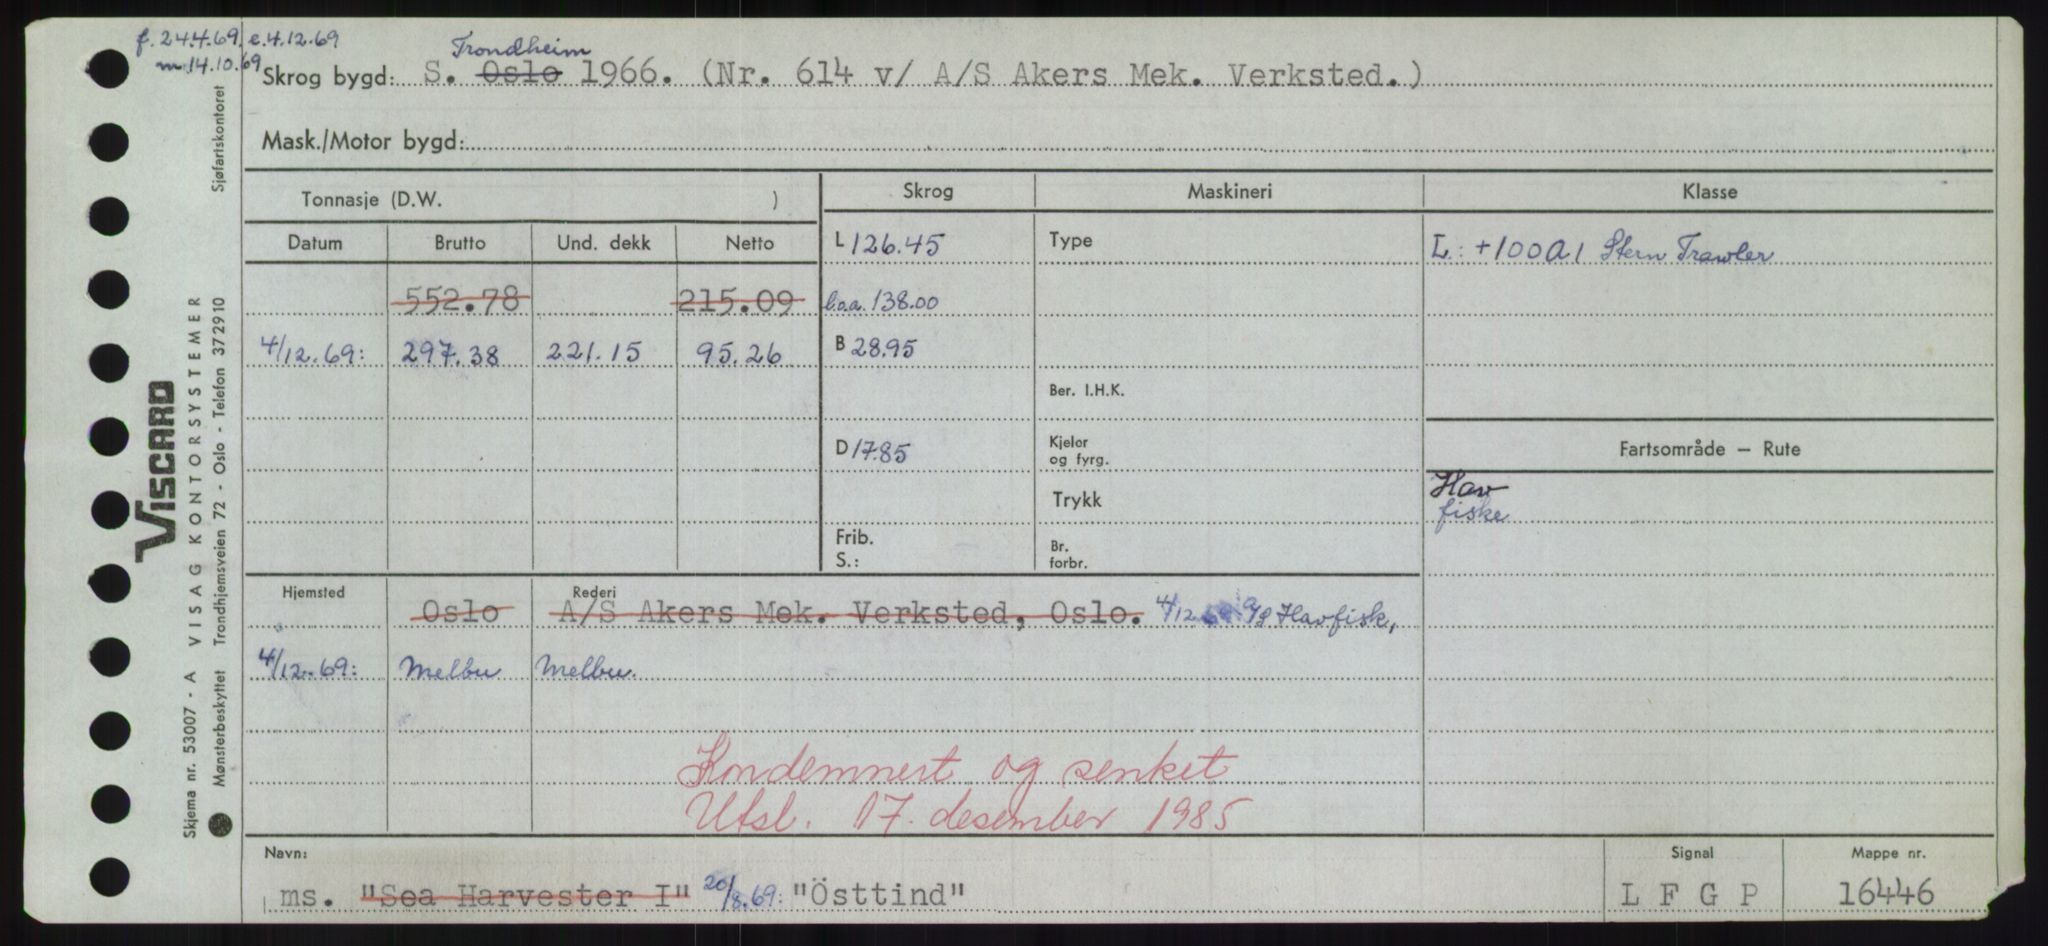 f. 24.4.69. e.4.12.69
m 14.10.69
Trondheim
Skrog bygd: S. Oslo 1966. (Nr. 614 v/ A/S Akers Mek. Verksted.)
Mask./Motor bygd:
Tonnasje (D.W. )
Skrog Maskineri Klasse
Datum Brutto Und. dekk Netto
L 126.45 Type L: +100A1 Stern Trawler
552.78 215.09 l.o.a. 138.00
4/12.69: 297.38 221.15 95.26 B 28.95
Ber. I.H.K.
D 17.85 Kjeler og fyrg. Fartsområde — Rute
Trykk Hav
fiske
Frib.
S.: Br. forbr.
Hjemsted Rederi
Oslo A/S Akers Mek. Verksted, Oslo. 4/12.69: A/S Havfisk,
4/12.69: Melbu Melbu.
Kondemnert og senket
Utsl. 17. desember 1985
Navn: Signal Mappe nr.
ms. "Sea Harvester I" 20/8.69: "Östtind" L F G P 16446
Viscard
Skjema nr. 53007 - A VISAG KONTORSYSTEMER
Mønsterbeskyttet Trondhjemsveien 72 - Oslo - Telefon 372910 Sjøfartskontoret